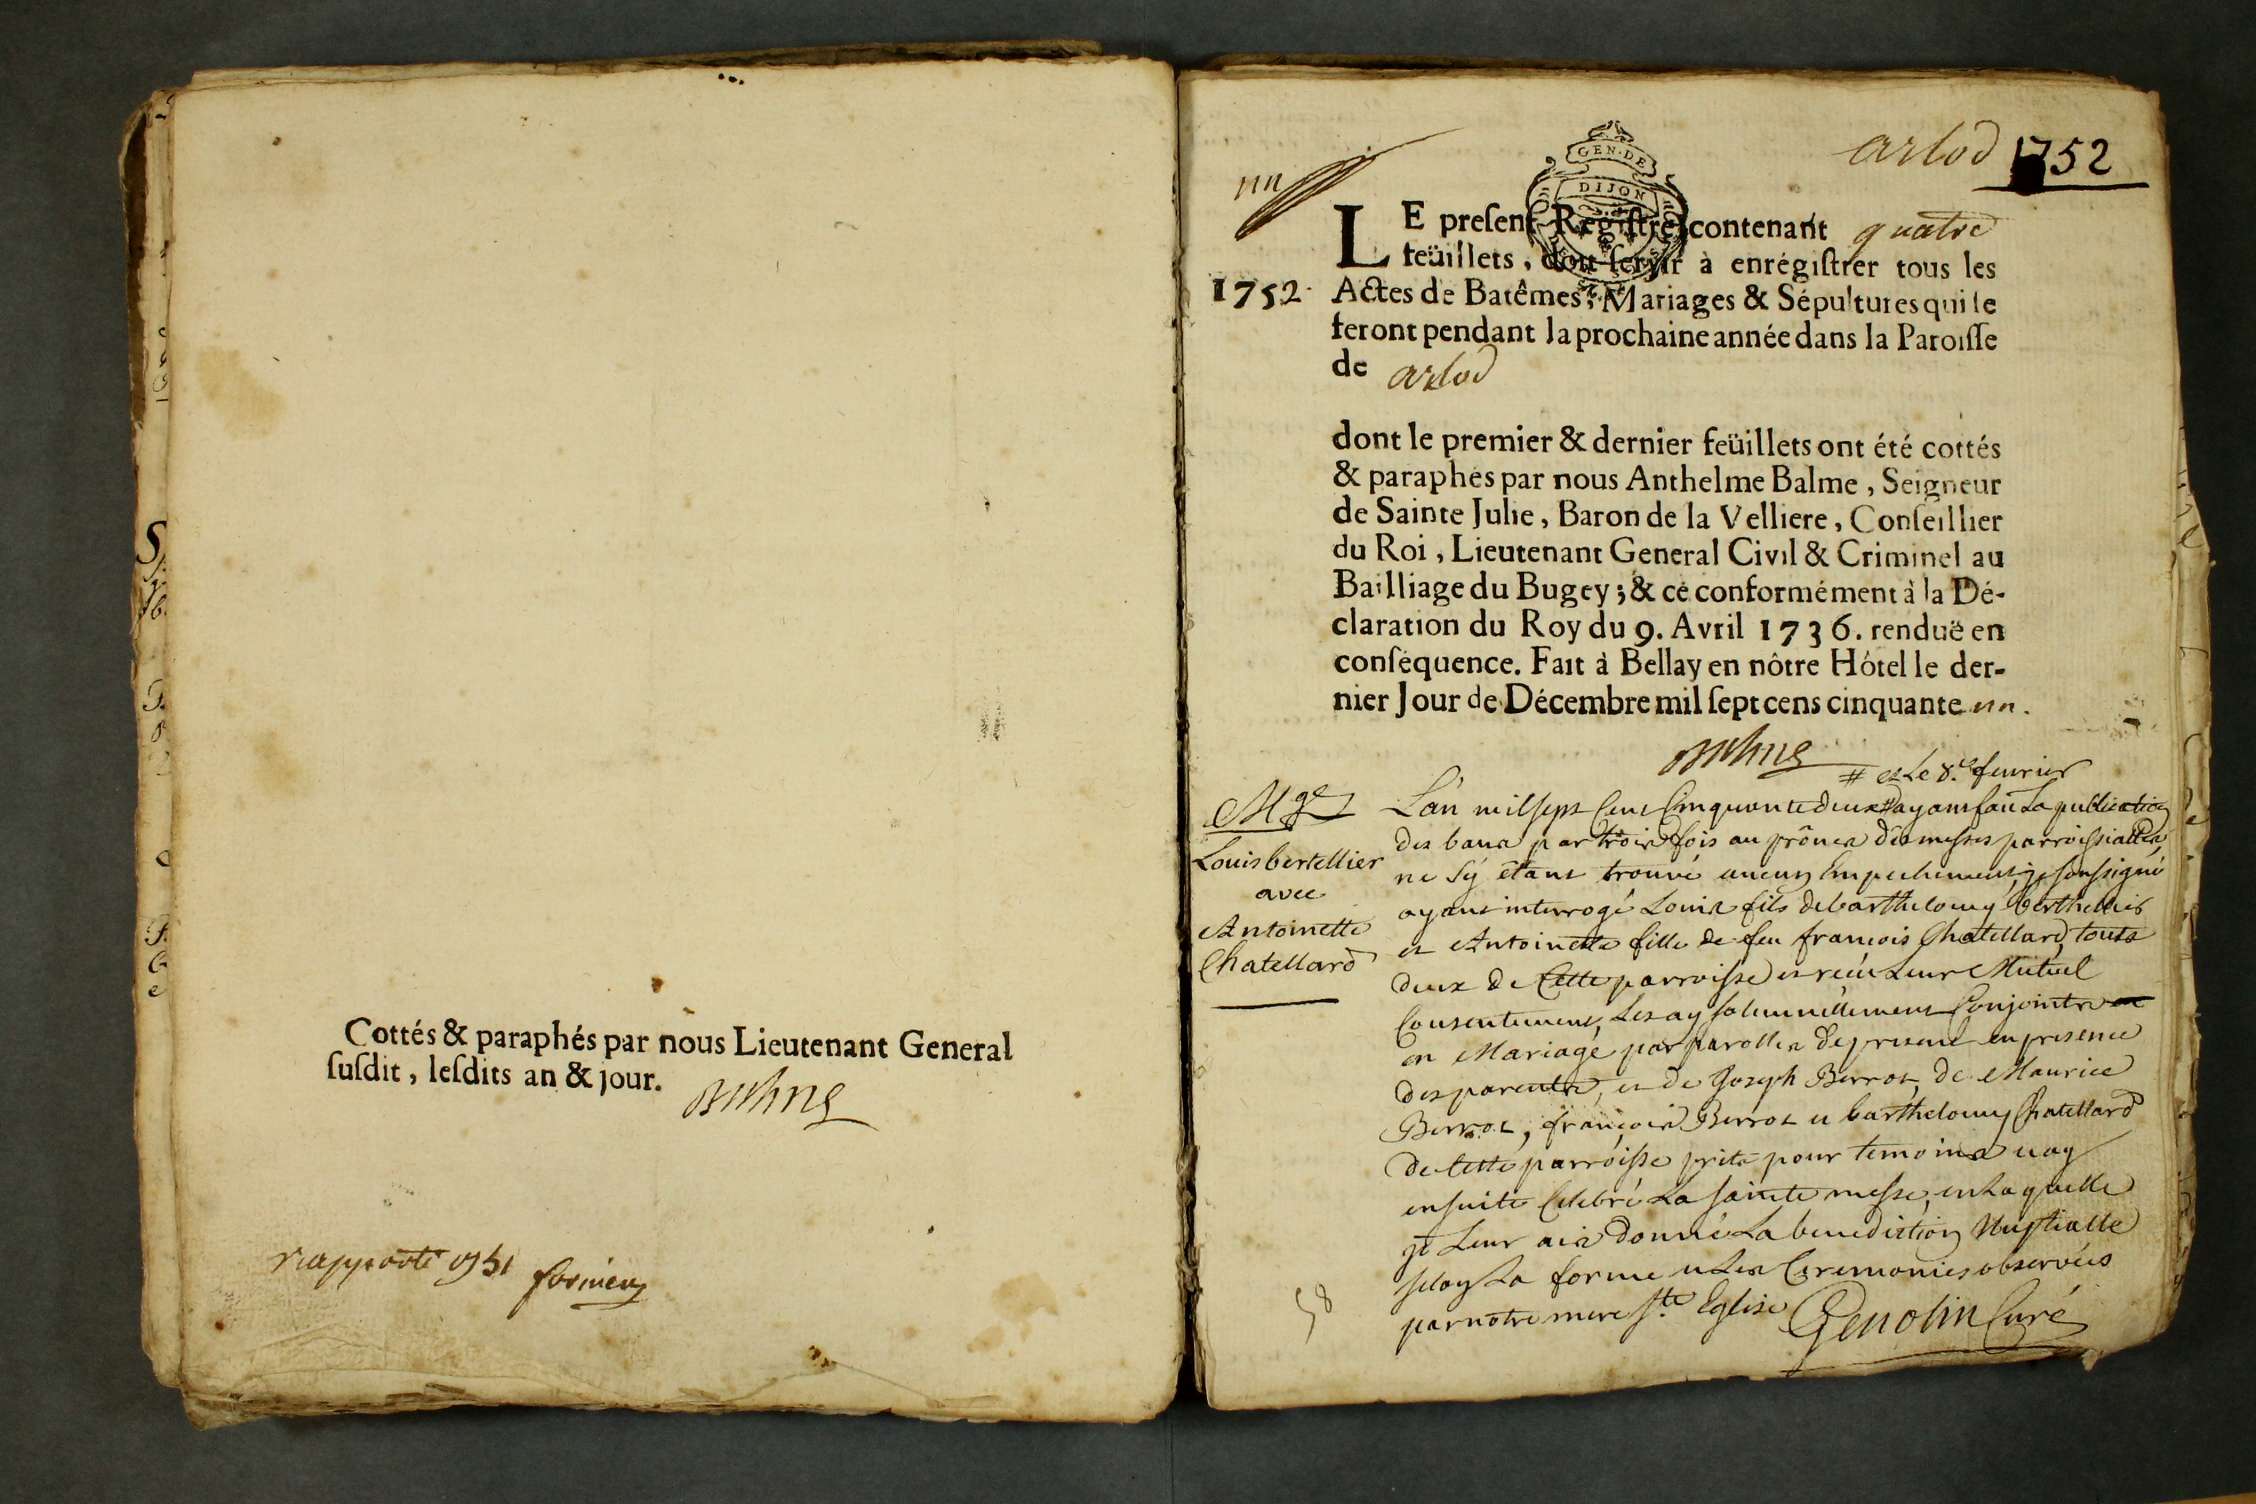 Cottés & paraphés par nous Lieutenant General
suſdit, leſdits an & jour.
rapporté 1751
arlod 1752
un
GEN. DE
DIJON
LE preſent Regiſtre contenant quatre
feüillets, doit ſervir à enrégiſtrer tous les
1752. Actes de Batêmes, Mariages & Sépultures qui ſe
feront pendant la prochaine année dans la Paroiſſe
de arlod
dont le premier & dernier feüillets ont été cottés
& paraphés par nous Anthelme Balme, Seigneur
de Sainte Julie, Baron de la Velliere, Conſeillier
du Roi, Lieutenant General Civil & Criminel au
Bailliage du Bugey; & ce conformément à la Dé-
claration du Roy du 9. Avril 1736. renduë en
conſéquence. Fait à Bellay en nôtre Hôtel le der-
nier Jour de Décembre mil ſept cens cinquante un.
# et le 8.e feuvrier
Mge
Louis bertellier
avec
Antoinette
Chatellard
L'an mil sept Cent Cinquante deux # ayant fait La publication
des bans par trois fois au prônes des messes parroissialles
ne s'y étant trouvé aucun Empechement, je soussigné
ayant interrogé Louis fils de barthelomy berthellier
et Antoinette fille de feu francois Chatellard, touts
deux de Cette parroisse et reçu Leur Mutuel
Consentement, Les ay solemnellement Conjoints
en Mariage par parolles de present en presence
des parents, et de Joseph Berrot, de Maurice
Berrot, françois Berrot et barthelomy Chatellard
de Cette parroisse prits pour temoins et ay
ensuite Celebré La sainte messe, en La quelle
je Leur ais donné La benediction Nuptialle
selon La forme et Les Ceremonies observées
par notre mere ste Eglise Genolin Curé
58